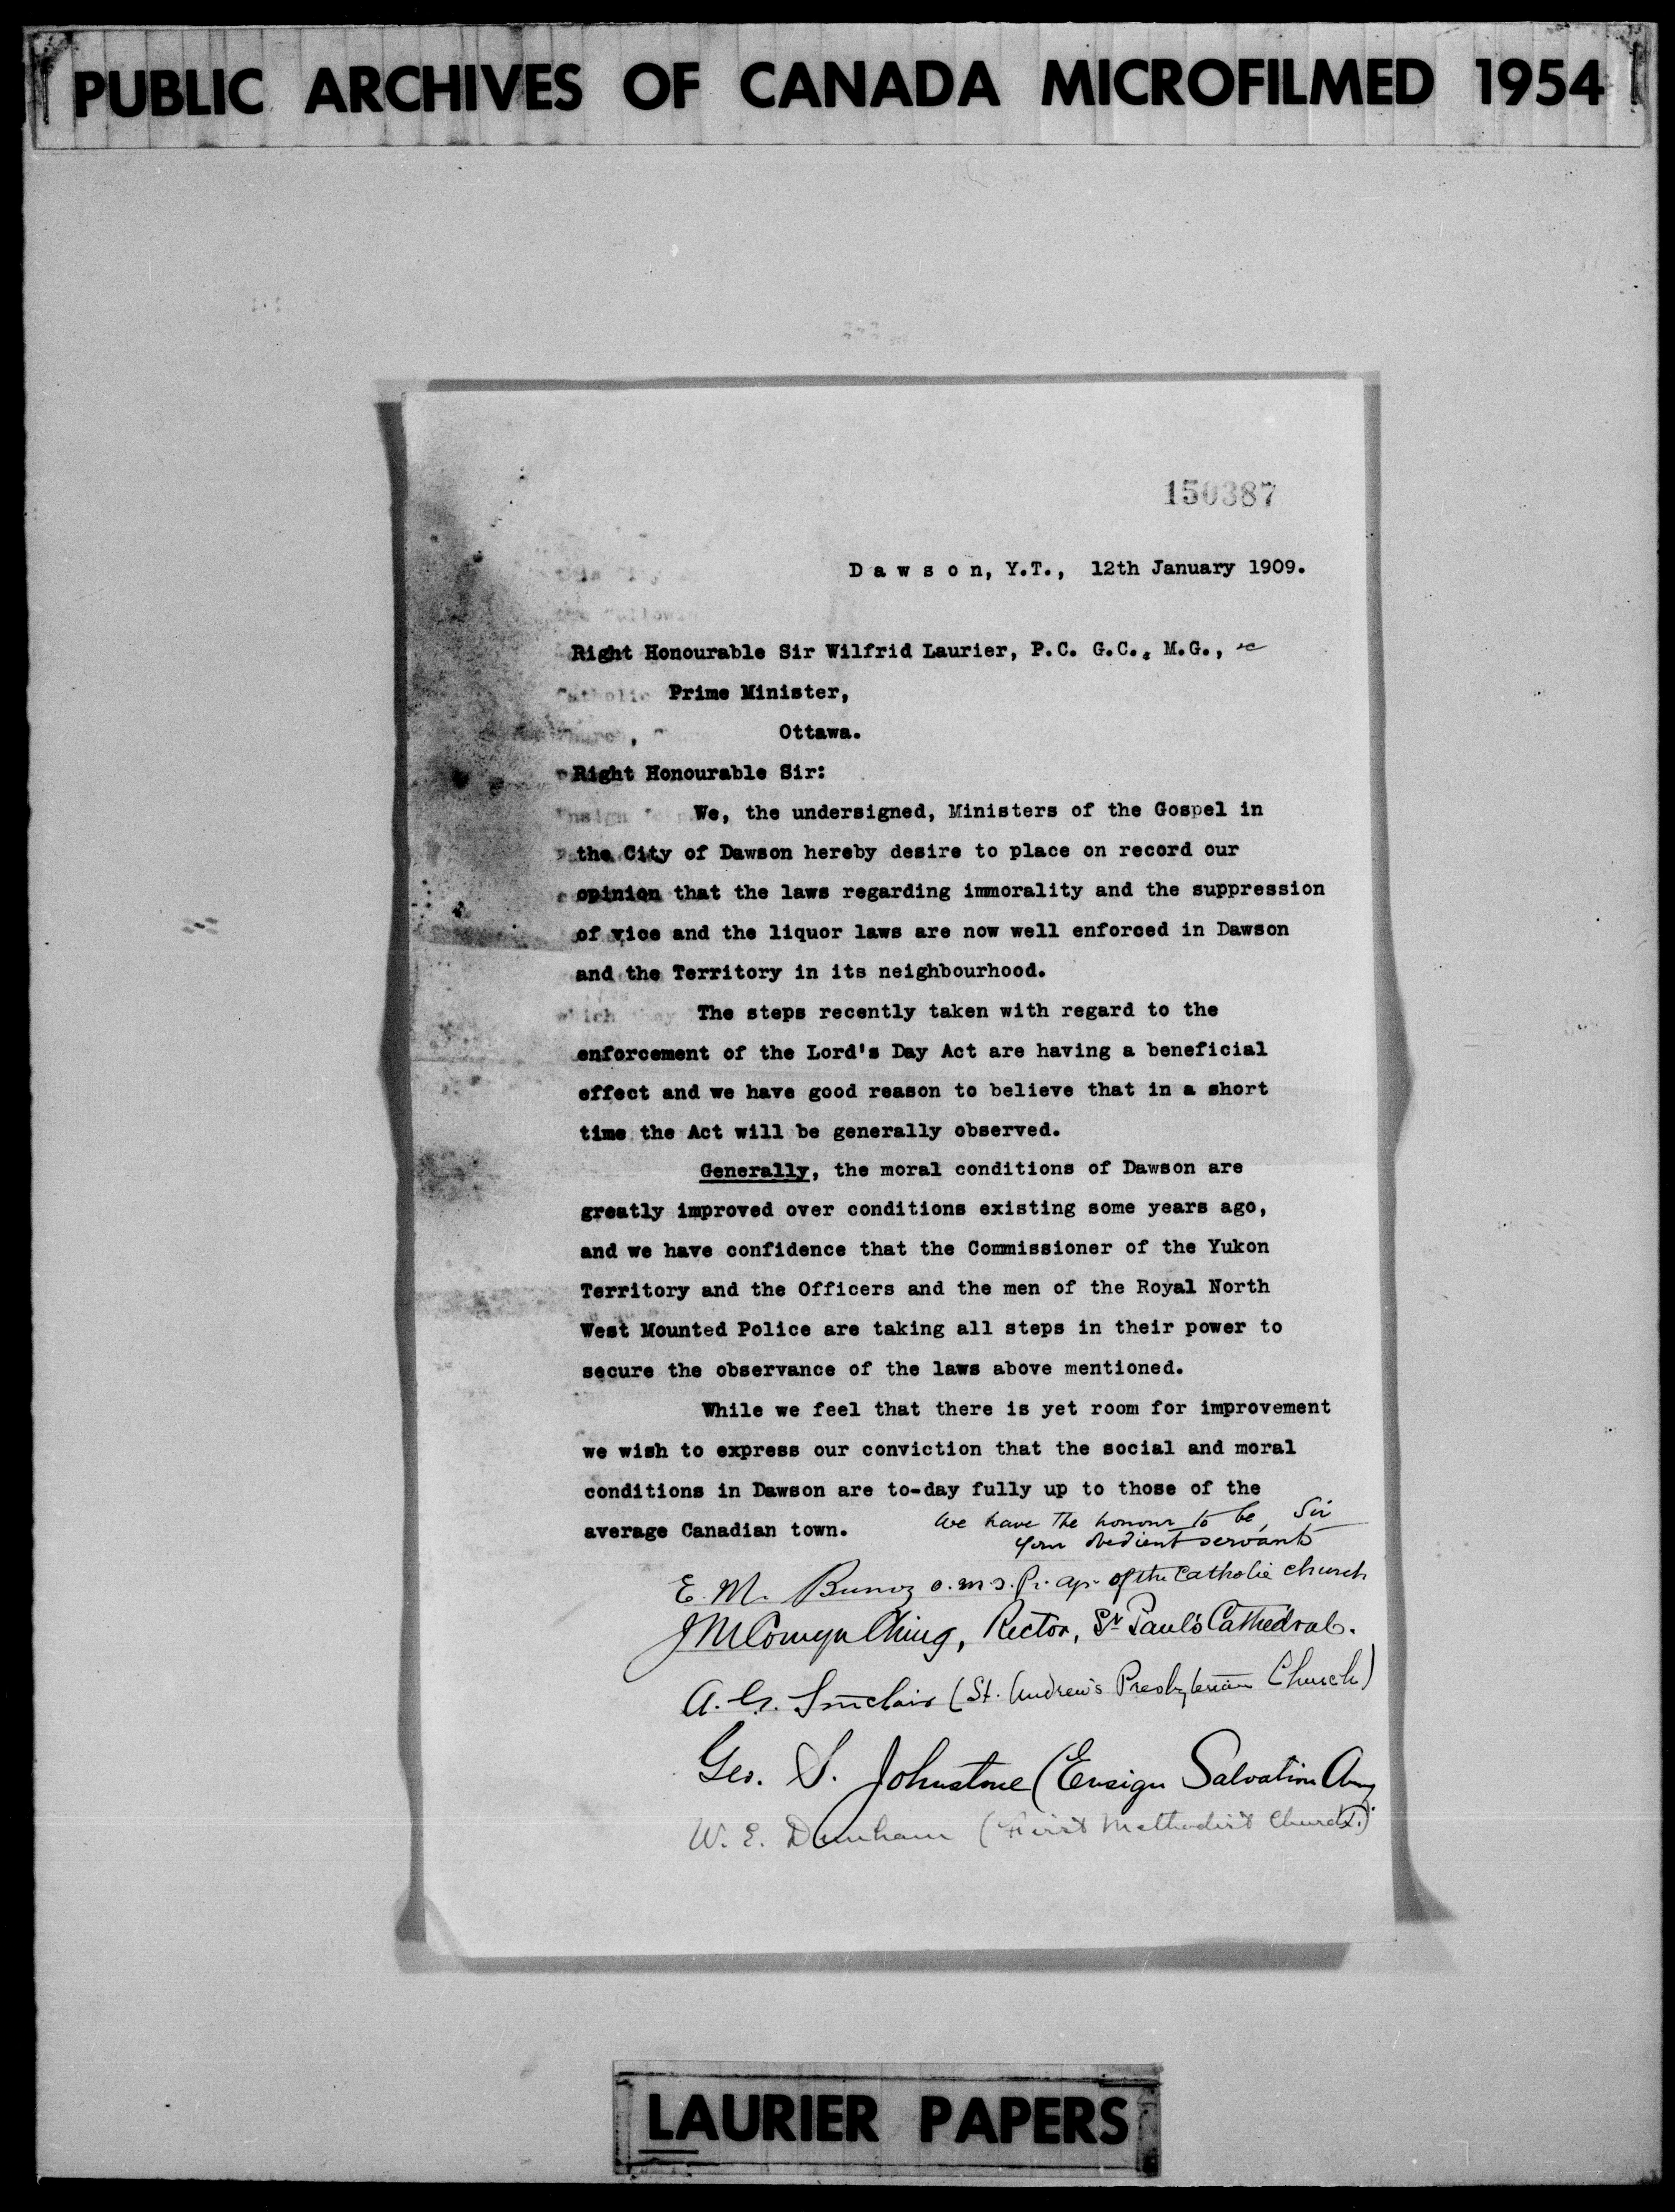 PUBLIC ARCHIVES OF CANADA MICROFILMED 1954
150387
Dawson, Y.T., 12th January 1909.
Right Honourable Sir Wilfrid Laurier, P.C. G.C., M.G.,
Prime Minister,
Ottawa.
Right Honourable Sir:
We, the undersigned, Ministers of the Gospel in
the City of Dawson hereby desire to place on record our
opinion that the laws regarding immorality and the suppression
of vice and the liquor laws are now well enforced in Dawson
and the Territory in its neighbourhood.
The steps recently taken with regard to the
enforcement of the Lord's Day Act are having a beneficial
effect and we have good reason to believe that in a short
time the Act will be generally observed.
Generally, the moral conditions of Dawson are
greatly improved over conditions existing some years ago,
and we have confidence that the Commissioner of the Yukon
Territory and the Officers and the men of the Royal North
West Mounted Police are taking all steps in their power to
secure the observance of the laws above mentioned.
While we feel that there is yet room for improvement
we wish to express our conviction that the social and moral
conditions in Dawson are to-day fully up to those of the
average Canadian town.
We have the honour to be, Sir
Your obedient servants
E. M. Bunoz o.m.J. Pr. ap. of the Catholic church
J M Comyn Ching, Rector, St Paul's Cathedral.
A. G. Sinclair (St. Andrew's Presbyterian Church)
Geo. S. Johnstone (Ensign Salvation Army
W. E. Dunham (First Methodist Church.)
LAURIER PAPERS